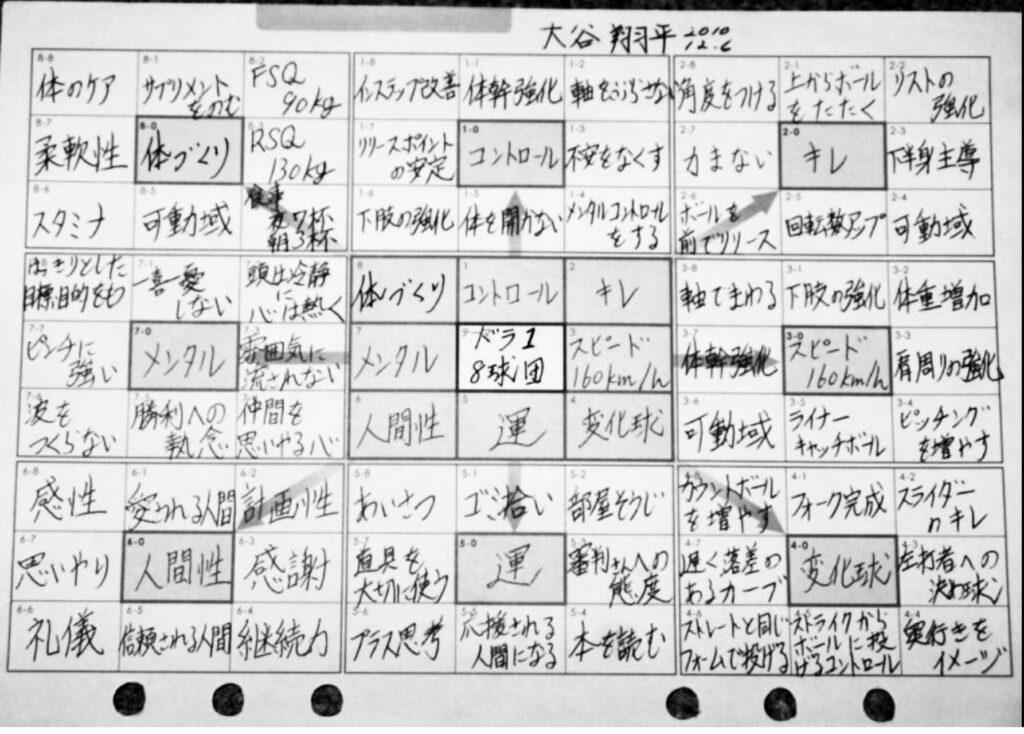 大谷 翔平 2010
12.6
8-8
体のケア
8-1
サプリメント
をのむ
8-2
FSQ
90kg
8-7
柔軟性
8-0
体づくり
RSQ
130kg
8-6
スタミナ
8-5
可動域
食事
夜7杯
朝3杯
1-8
インステップ改善
1-1
体幹強化
1-2
軸をぶらさない
1-7
リリースポイント
の安定
1-0
コントロール
1-3
不安をなくす
1-6
下肢の強化
1-5
体を開かない
1-4
メンタルコントロール
をする
2-8
角度をつける
2-1
上からボール
をたたく
2-2
リストの
強化
2-7
力まない
2-0
キレ
2-3
下半身主導
2-6
ボールを
前でリリース
2-5
回転数アップ
2-4
可動域
はっきりとした
目標、目的をもつ
7-1
一喜一憂
しない
頭は冷静
に
心は熱く
7-7
ピンチに
強い
7-0
メンタル
7-3
雰囲気に
流されない
7-6
波を
つくらない
7-5
勝利への
執念
仲間を
思いやる心
8
体づくり
1
コントロール
2
キレ
7
メンタル
ドラ1
8球団
3
スピード
160km/h
6
人間性
5
運
4
変化球
3-8
軸でまわる
3-1
下肢の強化
3-2
体重増加
3-7
体幹強化
3-0
スピード
160km/h
3-3
肩周りの強化
3-6
可動域
3-5
ライナー
キャッチボール
3-4
ピッチング
を増やす
6-8
感性
6-1
愛される人間
6-2
計画性
6-7
思いやり
6-0
人間性
6-3
感謝
6-6
礼儀
6-5
信頼される人間
6-4
継続力
5-8
あいさつ
5-1
ゴミ拾い
5-2
部屋そうじ
5-7
道具を
大切に使う
5-0
運
5-3
審判さんへの
態度
5-6
プラス思考
5-5
応援される
人間になる
5-4
本を読む
4-8
カウントボール
を増やす
4-1
フォーク完成
4-2
スライダー
のキレ
4-7
遅く落差の
あるカーブ
4-0
変化球
4-3
左打者への
決め球
4-6
ストレートと同じ
フォームで投げる
4-5
ストライクから
ボールに投
げるコントロール
4-4
奥行きを
イメージ